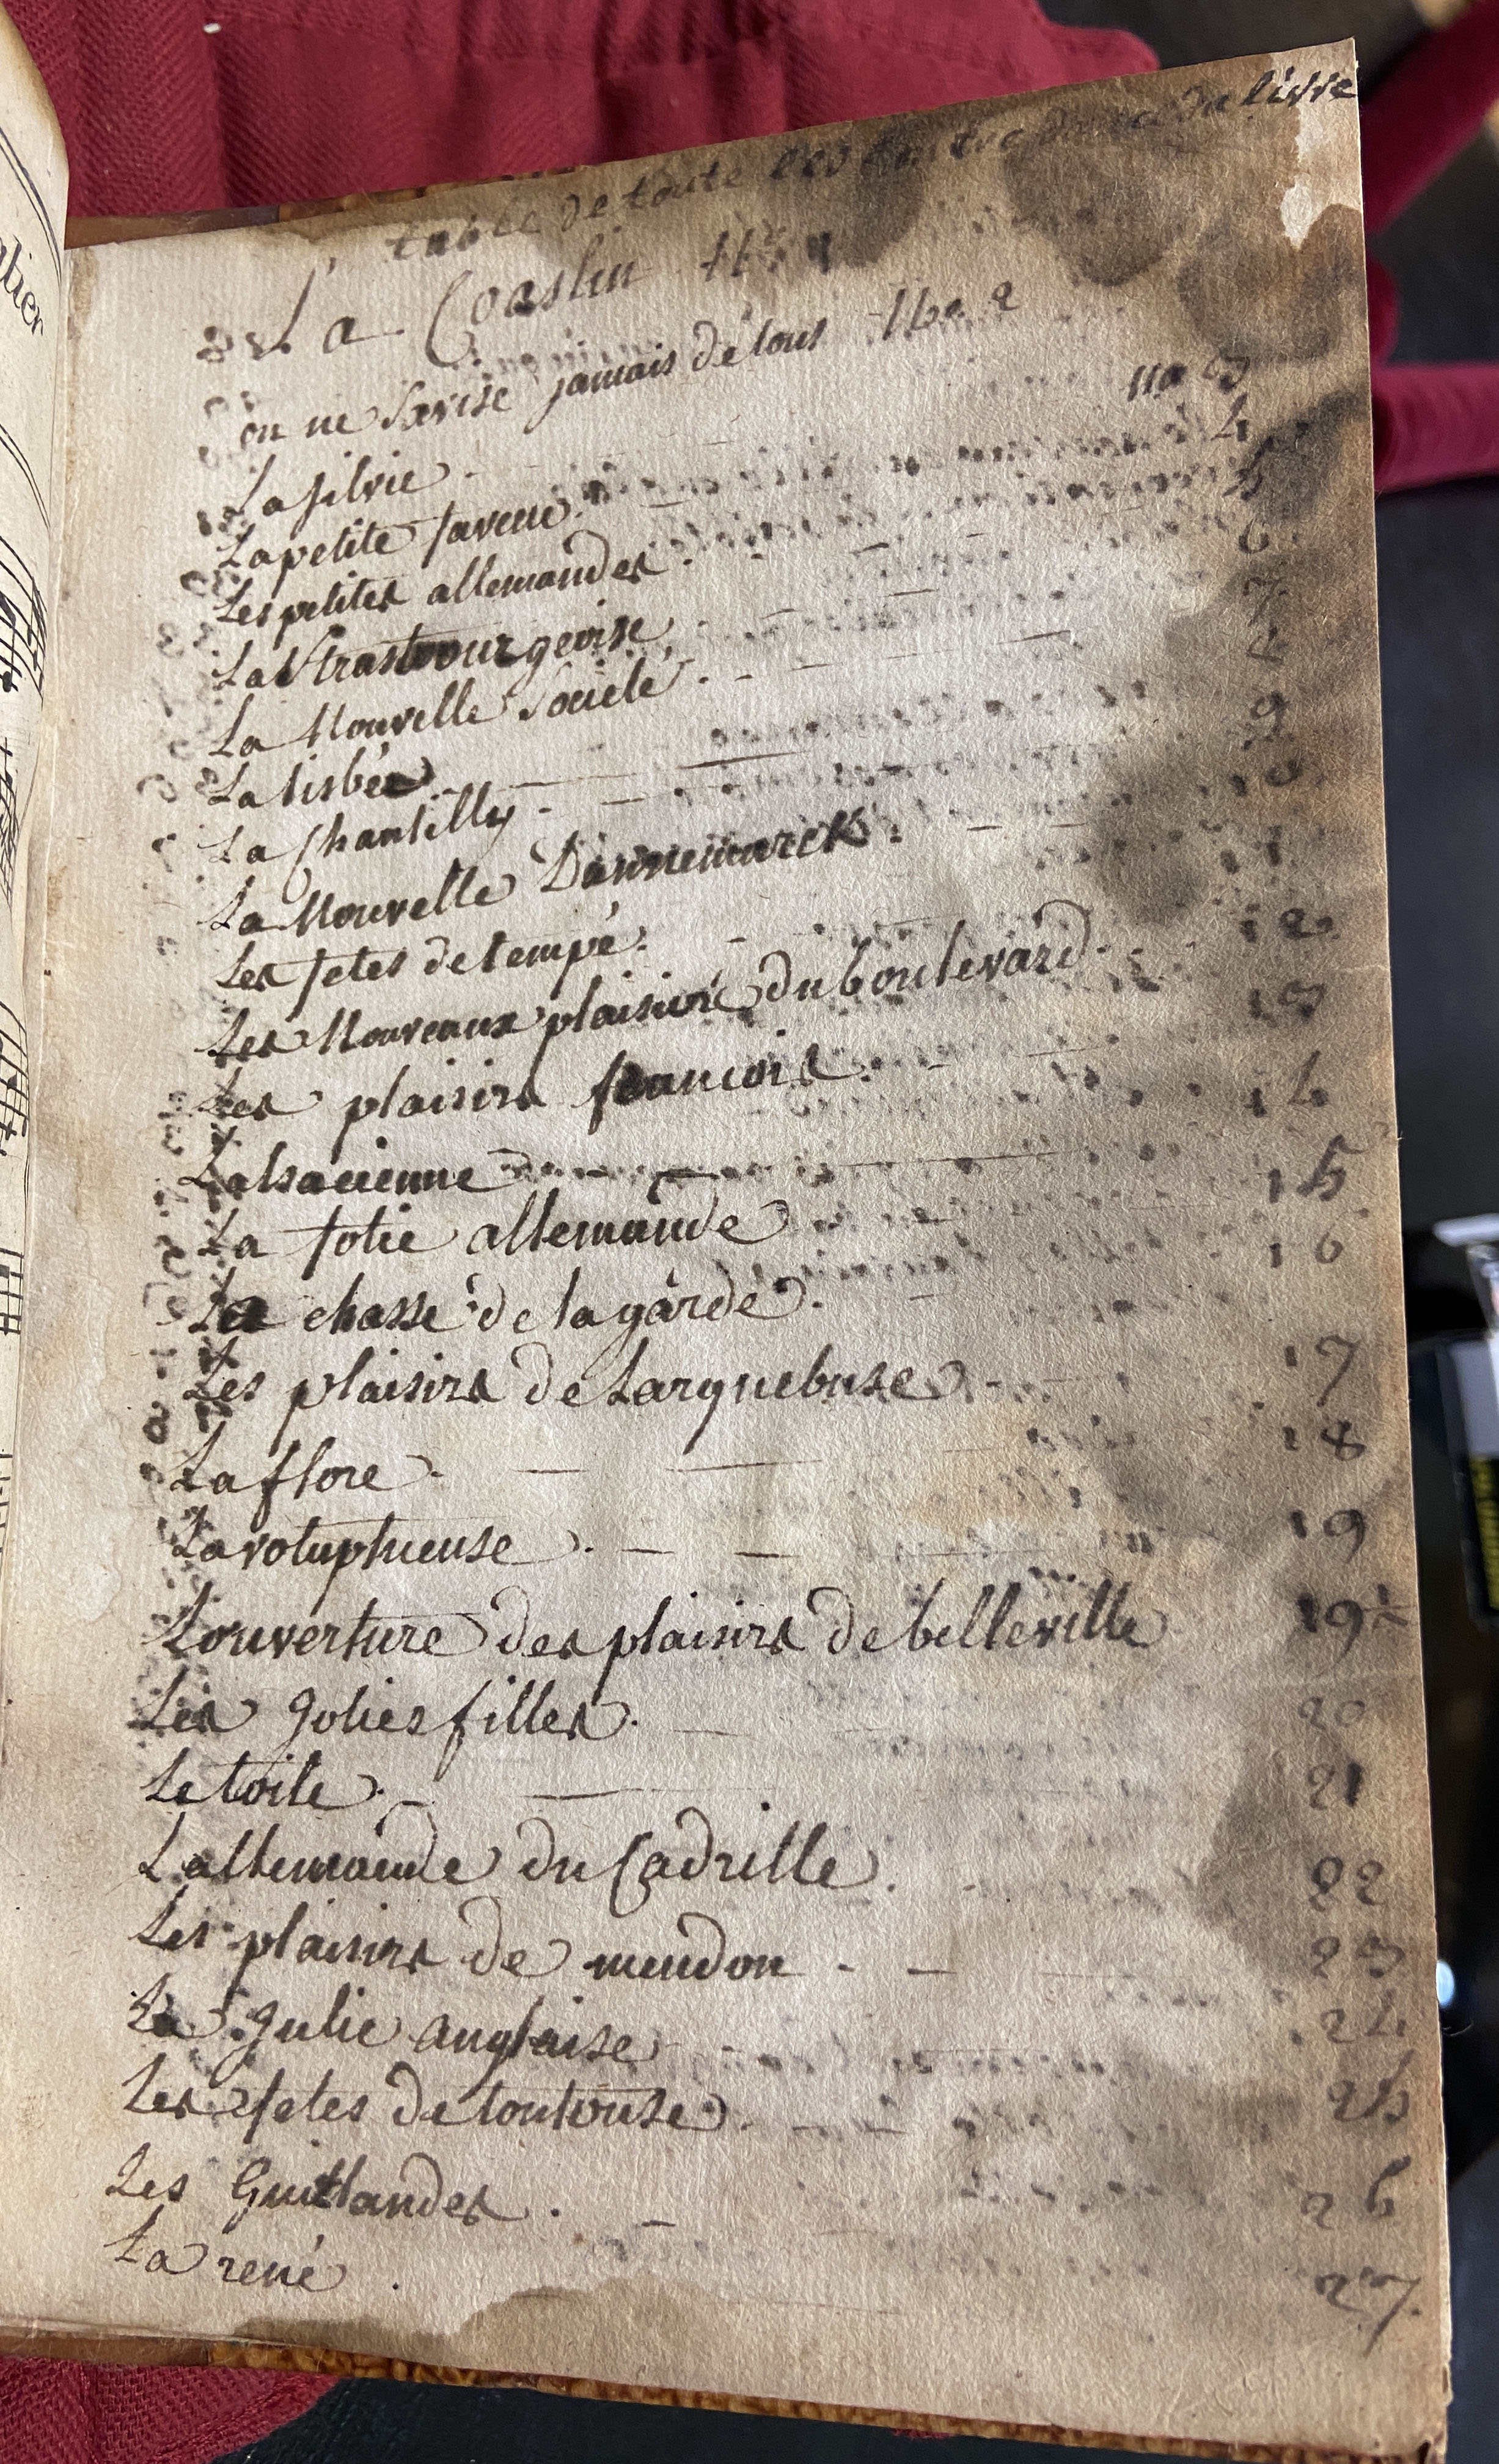 table de toute les Contre Dance Du livre
La Coaslin No 1
on ne savise jamais de tous No 2
La silvie No 3
La petite javene 4
Les petites allemandes 5
La Strasbourgeoise 6
La Nouvelle Société 7
La lisbée 8
La Chantilly 9
La Nouvelle Dannemarck 10
Les fetes de tempé 11
Les Nouveaux plaisirs du boulevard 12
Les plaisirs francois 13
Lalsacienne 14
La jolie allemande 15
La chasse de la garde 16
Les plaisirs de Larquebuse 17
La flore 18
La voluptueuse 19
Louverture des plaisirs de belleville 19½
Les Jolies filles 20
Letoile 21
Lallemande du Cadrille 22
Les plaisirs de meudon 23
La Julie anglaise 24
Les fetes de toulouse 25
Les Guirlandes 26
La rené 27